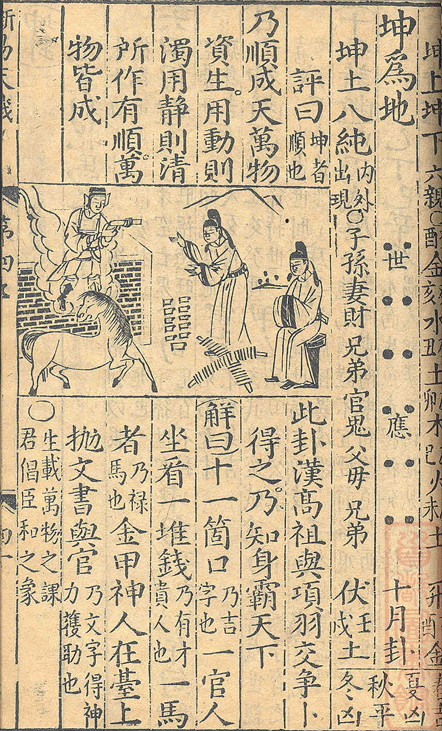 坤上坤下　六親
坤爲地　世　應　十月卦　夏凶　秋平
坤土八純　内外出現　〇子孫妻財兄弟官鬼父母兄弟　伏壬戌土　冬凶
評曰　坤者順也
乃順成天萬物
資生。用動則
濁用靜則清
所作有順萬
物皆成
此卦漢高祖與項羽交爭卜
得之乃知身霸天下
解曰十一箇口　乃吉字也　一官人
坐看一堆錢　乃有才貴人也　一馬
者　乃禄馬也　金甲神人在臺上
抛文書與官　乃文字得神力獲助也
〇　生載萬物之課　君倡臣和之象